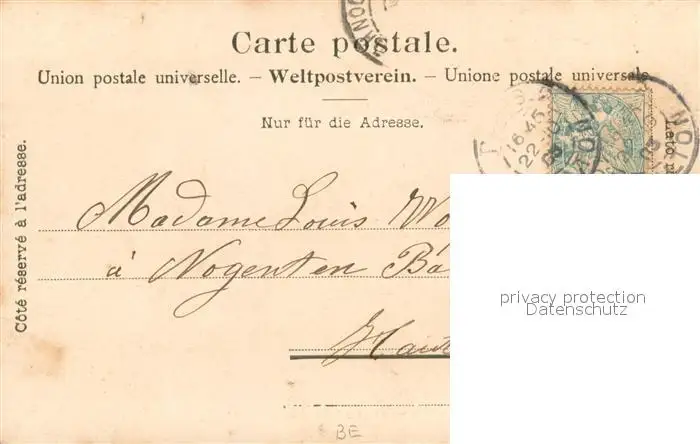 Carte postale.
Union postale universelle. – Weltpostverein. – Unione postale universale
Nur für die Adresse.
Côté réservé à l'adresse.
Madame Louis
à Nogent en
privacy protection
Datenschutz
BE